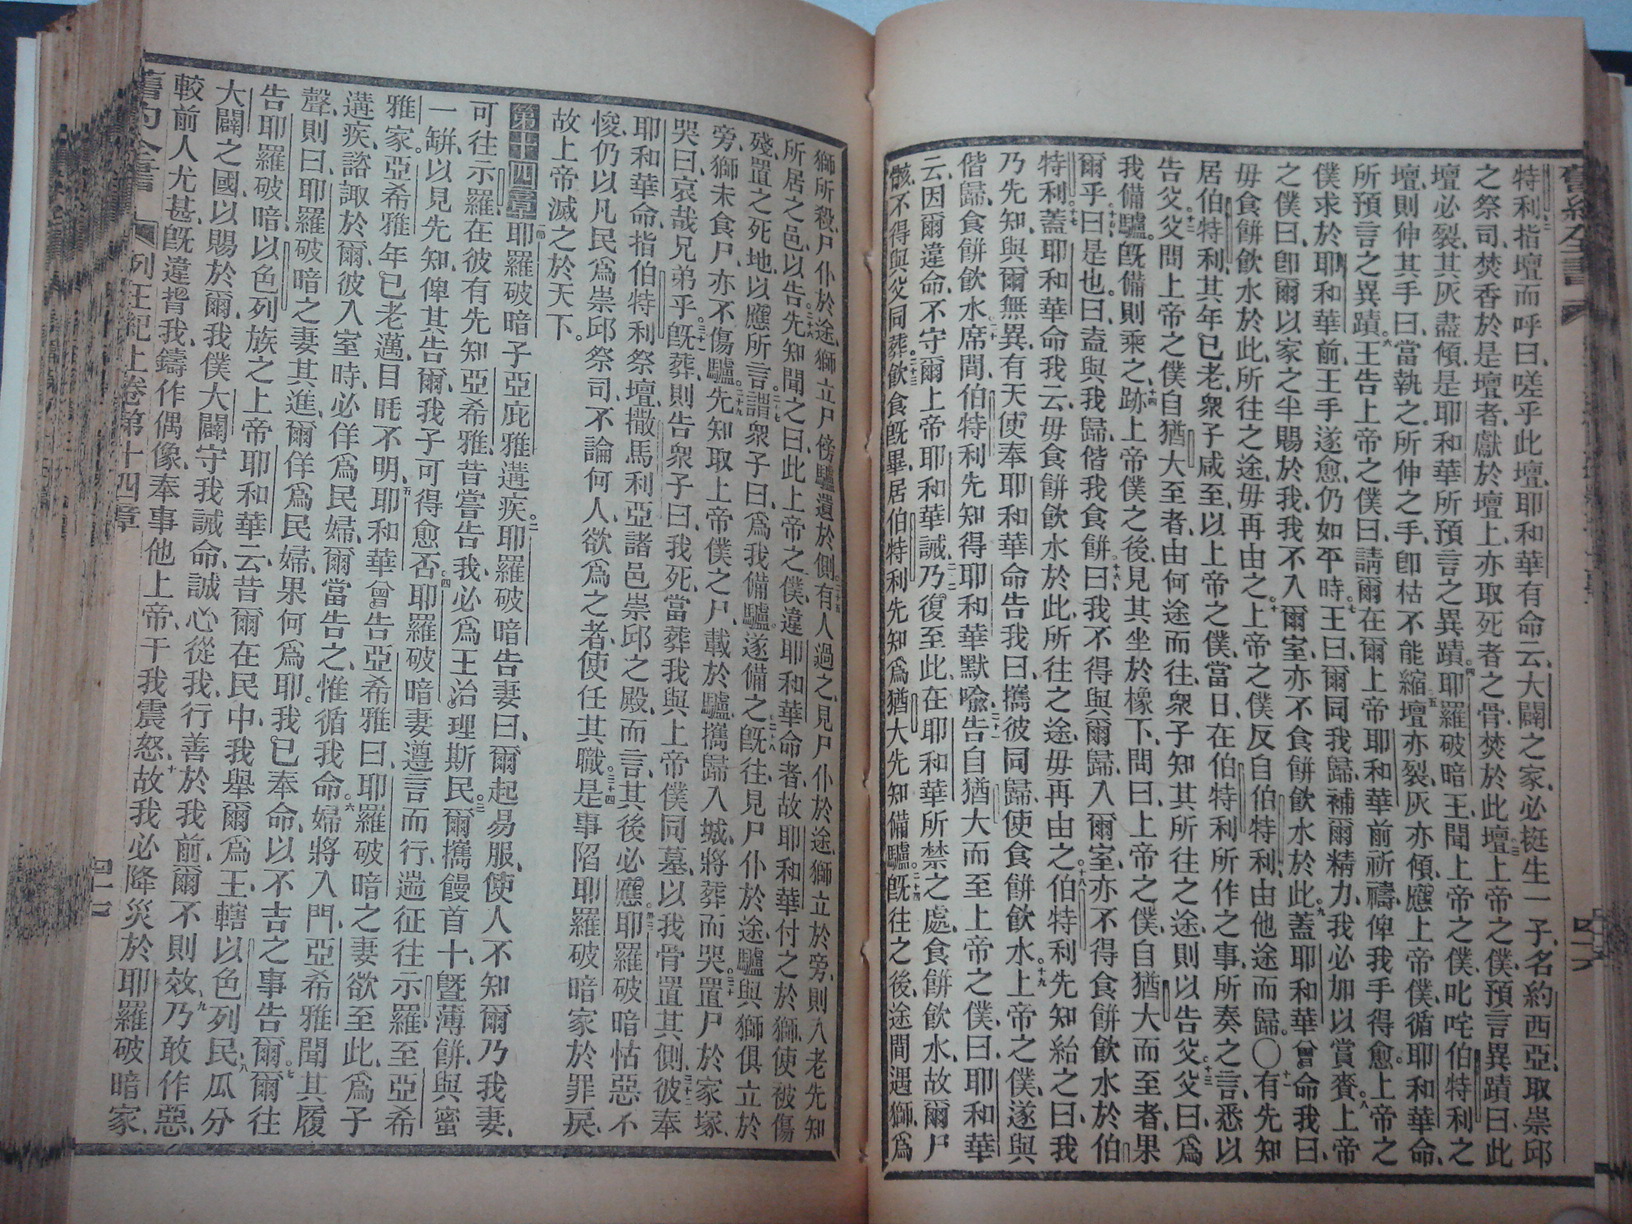 特利指壇而呼曰、嗟乎此壇、耶和華有命云、大闢之家、必挺生一子、名約西亞、取崇邱
之祭司、焚香於是壇者、獻於壇上、亦取死者之骨焚於此、壇上帝之僕、預言異蹟曰、此
壇必裂、其灰盡傾、是耶和華所預言之異蹟。耶羅破暗王聞上帝之僕、叱咤伯特利之
壇、則伸其手曰、當執之、所伸之手、卽枯不能縮、壇亦裂、灰亦傾、應上帝僕、循耶和華命、
所預言之異蹟。王告上帝之僕曰、請爾在爾上帝耶和華前祈禱、俾我手得愈。上帝之
僕求於耶和華前、王手遂愈、仍如平時。王曰、爾同我歸、補爾精力、我必加以賞賚。上帝
之僕曰、卽爾以家之半賜於我、我不入爾室、亦不食餅飲水於此。蓋耶和華曾命我曰、
毋食餅飲水於此、所往之途、毋再由之。上帝之僕反自伯特利、由他途而歸。〇有先知
居伯特利、其年已老、衆子咸至、以上帝之僕、當日、在伯特利所作之事、所奏之言、悉以
告父。父問上帝之僕自猶大至者、由何途而往、衆子知其所往之途、則以告父。父曰、爲
我備驢。旣備則乘之、跡上帝僕之後、見其坐於橡下、問曰、上帝之僕、自猶大而至者、果
爾乎。曰、是也。曰、盍與我歸、偕我食餅。曰、我不得與爾歸、入爾室、亦不得食餅飲水於伯
特利。蓋耶和華命我云、毋食餅飲水於此、所往之途、毋再由之。伯特利先知紿之曰、我
乃先知、與爾無異、有天使奉耶和華命告我曰、攜彼同歸、使食餅飲水。上帝之僕、遂與
偕歸、食餅飲水。席間、伯特利先知得耶和華默喩、告自猶大而至上帝之僕曰、耶和華
云、因爾違命、不守爾上帝耶和華誡、乃復至此、在耶和華所禁之處、食餅飲水、故爾尸
骸、不得與父同葬。飲食旣畢、居伯特利先知爲猶大先知備驢。旣往之後、途間遇獅、爲
獅所殺、尸仆於途、獅立尸傍、驢遺於側。有人過之、見尸仆於途、獅立於旁、則入老先知
所居之邑、以告。先知聞之曰、此上帝之僕、違耶和華命者、故耶和華付之於獅、使被傷
殘、置之死地、以應所言。謂衆子曰、爲我備驢。遂備之。旣往、見尸仆於途、驢與獅俱立於
旁、獅未食尸、亦不傷驢。先知取上帝僕之尸、載於驢、攜歸入城、將葬而哭。置尸於家塚、
哭曰、哀哉兄弟乎。旣葬、則告衆子曰、我死當葬我、與上帝僕同墓、以我骨置其側。彼奉
耶和華命、指伯特利祭壇、撒馬利亞諸邑崇邱之殿、而言、其後必應。耶羅破暗怙惡不
悛、仍以凡民爲崇邱祭司、不論何人、欲爲之者、使任其職。是事陷耶羅破暗家於罪戾、
故上帝滅之於天下。
第十四章 耶羅破暗子亞庇雅遘疾。耶羅破暗告妻曰、爾起易服、使人不知爾乃我妻、
可往示羅、在彼有先知亞希雅、昔嘗告我、必爲王、治理斯民。爾攜饅首十、曁薄餅、與蜜
一缾、以見先知、俾其告爾、我子可得愈否。耶羅破暗妻遵言而行、遄征往示羅、至亞希
雅家。亞希雅年已老邁、目眊不明。耶和華曾告亞希雅曰、耶羅破暗之妻欲至此、爲子
遘疾、諮諏於爾、彼入室時、必佯爲民婦、爾當告之、惟循我命。婦將入門、亞希雅聞其履
聲、則曰、耶羅破暗之妻其進、爾佯爲民婦、果何爲耶。我已奉命、以不吉之事告爾。爾往
告耶羅破暗、以色列族之上帝耶和華云、昔爾在民中、我舉爾爲王、轄以色列民、瓜分
大闢之國、以賜於爾、我僕大闢守我誡命、誠心從我、行善於我前、爾不則效、乃敢作惡、
較前人尤甚、旣違背我、鑄作偶像、奉事他上帝、干我震怒。故我必降災於耶羅破暗家、
舊約全書 列王紀上卷第十四章 四十七